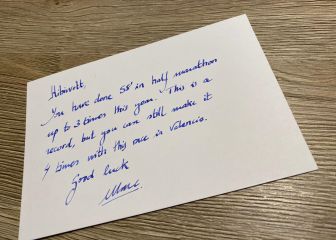 Hibiwott,
You have done 58' in half marathon
up to 3 times this year. This is a
record, but you can still make it
4 times with this one in Valencia.
Good luck
Marc